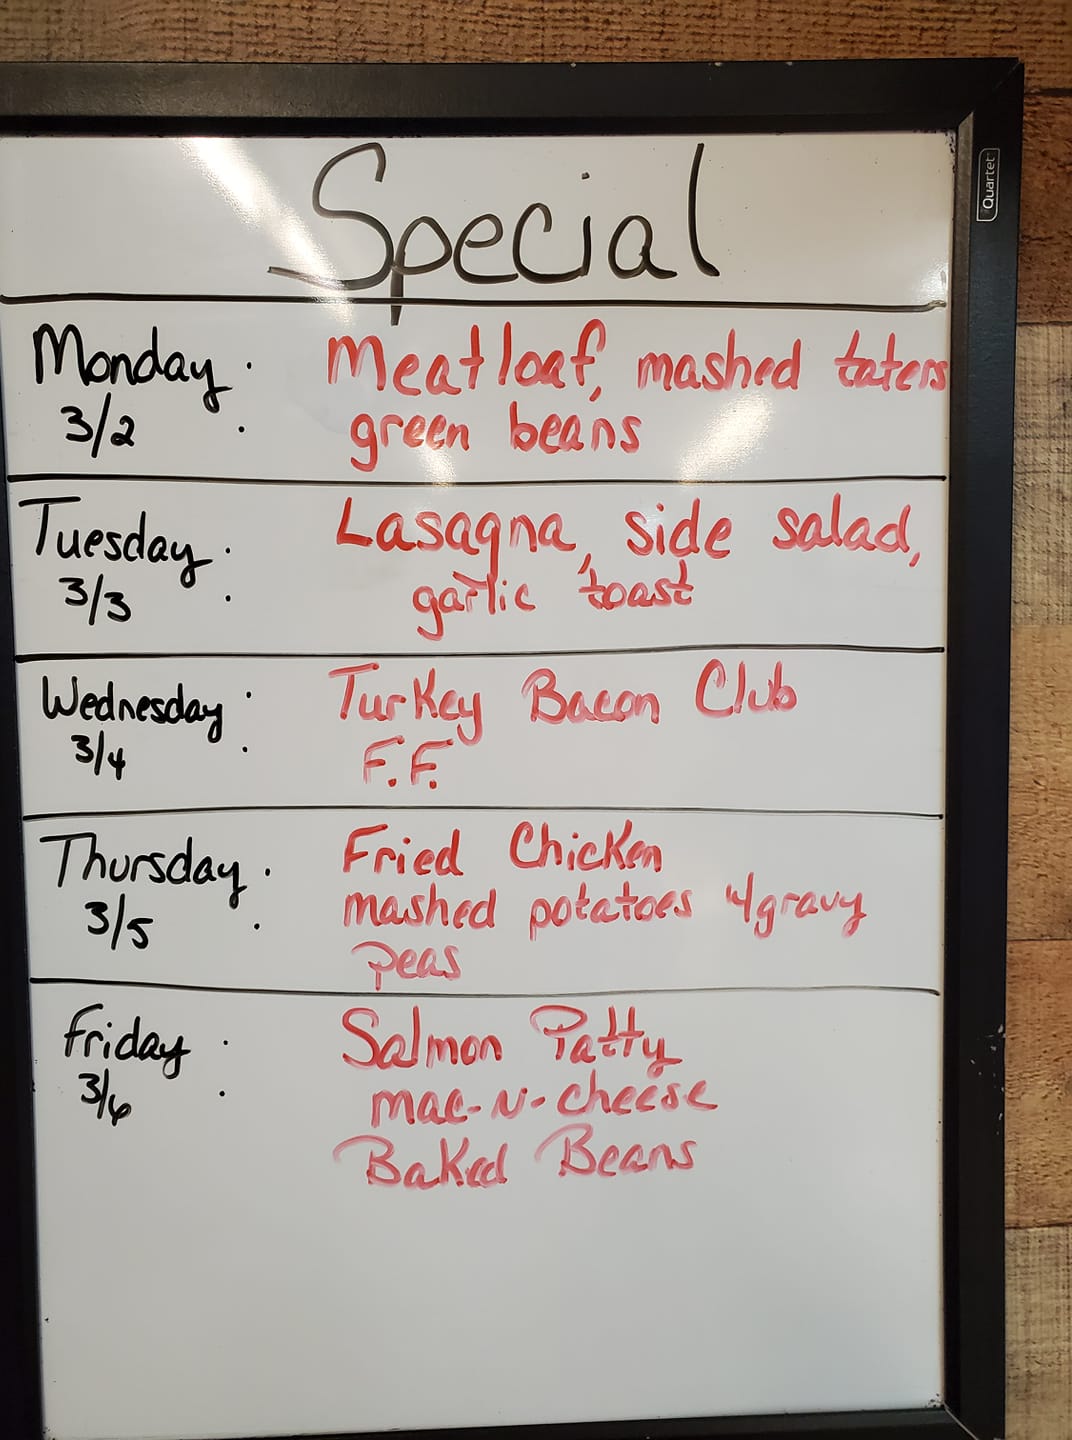 Quartet
Special
Monday :
3/2
Meatloaf, mashed taters
green beans
Tuesday :
3/3
Lasagna, side salad,
garlic toast
Wednesday :
3/4
Turkey Bacon Club
F.F.
Thursday :
3/5
Fried Chicken
mashed potatoes w/gravy
peas
Friday :
3/6
Salmon Patty
mac-n-cheese
Baked Beans